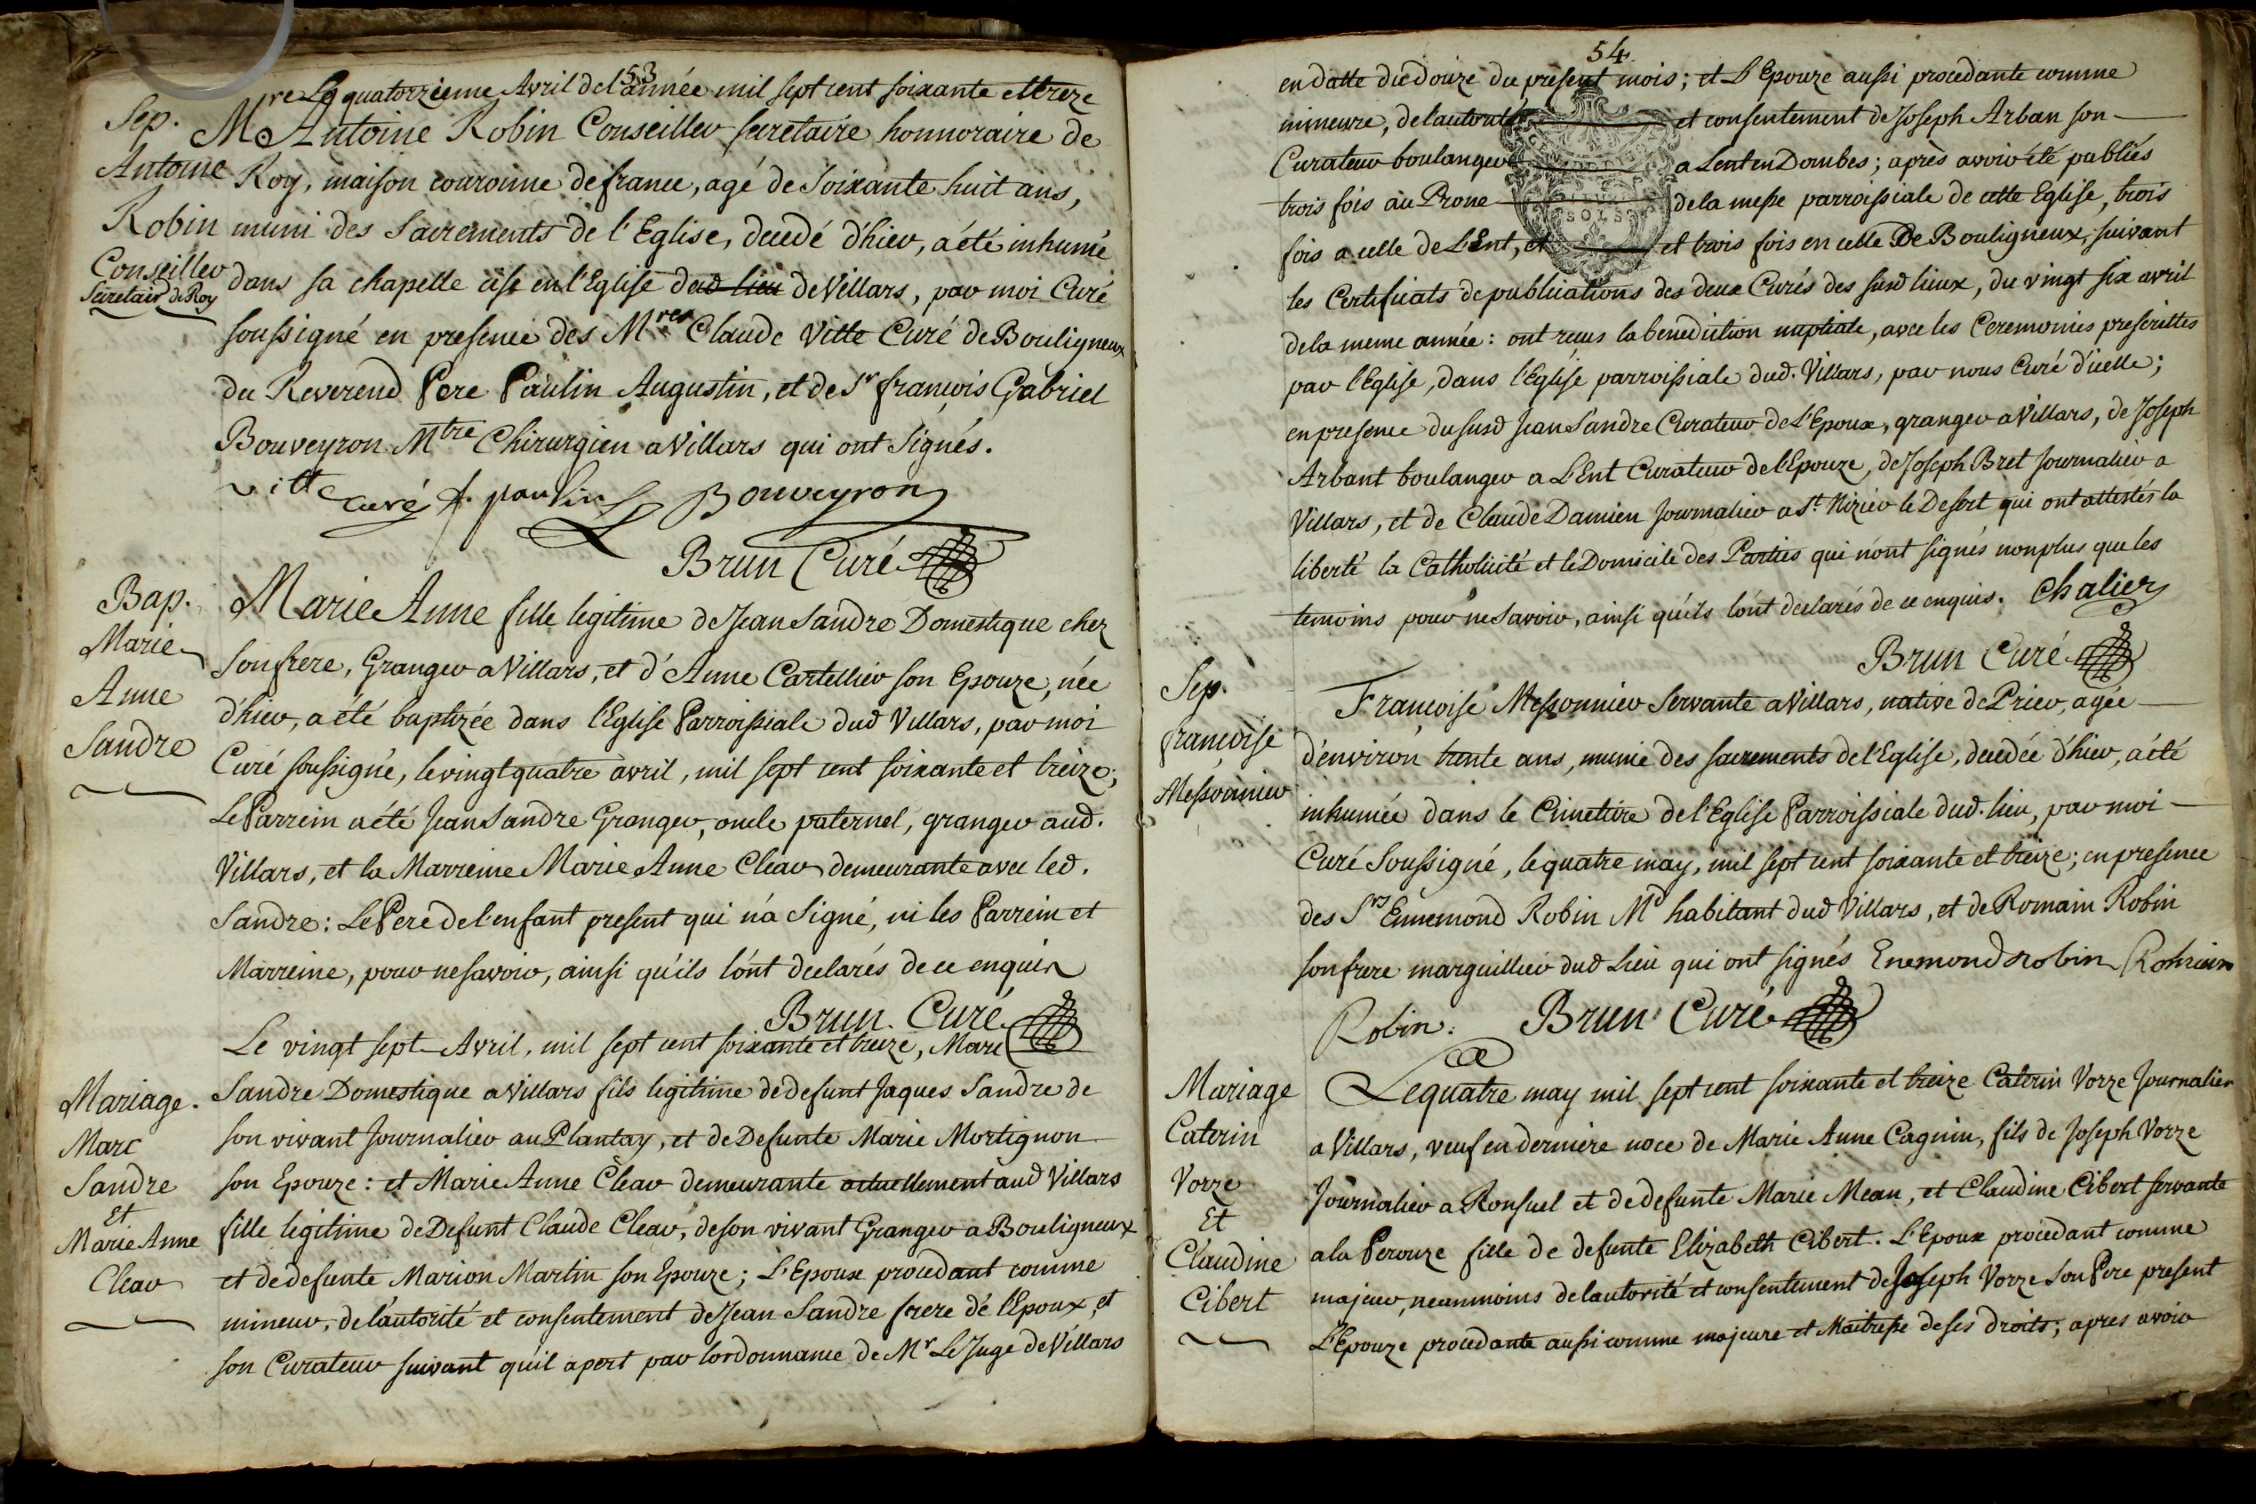 53
Le quatorzieme Avril de l'année mil sept cent soixante et treze
Sep.
Antoine
Robin
Conseiller
Secretair de Roy
Mre Antoine Robin Conseiller secretaire honnoraire de
Roy, maison couronne de france, agé de soixante huit ans,
muni des Sacrements de l'Eglise, decedé d'hier, a été inhumé
dans sa chapelle cise en l'Eglise dud lieu de Villars, par moi Curé
soussigné en presence des Mres Claude Vitte Curé de Bouligneux
du Reverend Pere Paulin Augustin, et de Sr françois Gabriel
Bouveyron Mtre Chirurgien a Villars qui ont Signés.
vitte curé f. paulin Bouveyron
Brun Curé
Bap.
Marie
Anne
Sandre
Marie Anne fille legitime de Jean Sandre Domestique chez
son frere, Granger a Villars, et d'Anne Cartellier son Epouze, née
d'hier, a été baptizée dans l'Eglise Parroissiale dud Villars, par moi
Curé soussigné, le vingt quatre avril, mil sept cent soixante et treize;
Le Parrein a été Jean Sandre Granger, oncle paternel, granger aud.
Villars, et la Marreine Marie Anne Clear demeurante avec led.
Sandre: Le Pere de l'enfant present qui n'a Signé, ni les Parrein et
Marreine, pour ne savoir, ainsi qu'ils l'ont declarés de ce enquis
Brun Curé
Mariage.
Marc
Sandre
Et
Marie Anne
Clear
Le vingt sept Avril, mil sept cent soixante et treize, Marc
Sandre Domestique a Villars fils legitime de defunt Jaques Sandre de
son vivant Journalier au Plantay, et de Defunte Marie Mortignon
son Epouze: et Marie Anne Clear demeurante actuellement aud Villars
fille legitime de Defunt Claude Clear, de son vivant Granger a Bouligneux
et de defunte Marion Martin son Epouze; L'Epoux procedant comme
mineur, de l'autorité et consentement de Jean Sandre frere de l'Epoux, et
son Curateur suivant qu'il apert par l'ordonnance de Mr Le Juge de Villars
54
en datte du douze du present mois; et L'Epouze aussi procedante comme
mineure, de l'autorité et consentement de Joseph Arban son
Curateur boulanger a Lent en Dombes; après avoir été publiés
trois fois au Prone de la messe parroissiale de cette Eglise, trois
fois a celle de L'Ent, et et trois fois en celle De Bouligneux, suivant
SOLS
les Certificats de publications des deux Curés des susd lieux, du vingt six avril
de la meme année: ont recus la benediction nuptiale, avec les Ceremonies prescrittes
par l'Eglise, dans l'Eglise parroissiale dud. Villars, par nous Curé d'icelle;
en presence du susd Jean Sandre Curateur de L'Epoux, granger a Villars, de Joseph
Arbant boulanger a L'Ent Curateur de l'Epouze, de Joseph Bret Journalier a
Villars, et de Claude Damien Journalier a St. Nizier le Desert qui ont attestés la
liberté la Catholicité et le Domicile des Parties qui n'ont signés non plus que les
temoins pour ne Savoir, ainsi qu'ils l'ont declarés de ce enquis. Chalier
Brun Curé
Sep.
françoise
Messonnier
Françoise Messonnier Servante a Villars, native de Prier, agée
d'environ trente ans, munie des sacrements de l'Eglise, decedée d'hier, a été
inhumée dans le Cimetiere de l'Eglise Parroissiale dud. lieu, par moi
Curé Soussigné, le quatre may, mil sept cent soixante et treize; en presence
des Srs Ennemond Robin Md habitant dud Villars, et de Romain Robin
son frere marguillier dud Lieu qui ont signés Enemond Robin Romain
Robin. Brun Curé
Mariage
Caterin
Vorze
Et
Claudine
Cibert
Le quatre may mil sept cent soixante et treize Caterin Vorze Journalier
a Villars, veuf en derniere noce de Marie Anne Cagnin, fils de Joseph Vorze
Journalier a Ronsuel et de defunte Marie Mean, et Claudine Cibert servante
a la Perouze fille de defunte Elizabeth Cibert. L'Epoux procedant comme
majeur, neanmoins de l'autorité et consentement de Joseph Vorze Son Pere present
L'Epouze procedante aussi comme majeure et Maitresse de ses droits; apres avoir